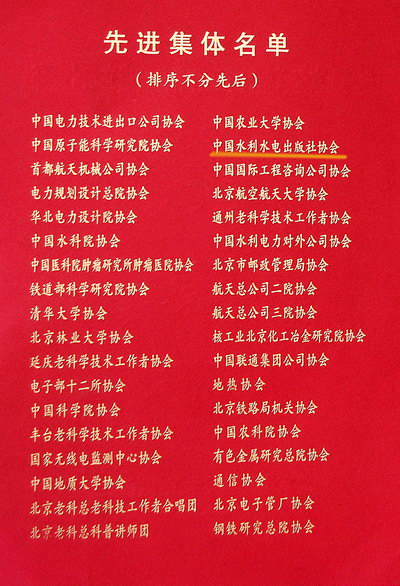 先进集体名单
（排序不分先后）
中国电力技术进出口公司协会
中国原子能科学研究院协会
首都航天机械公司协会
电力规划设计总院协会
华北电力设计院协会
中国水科院协会
中国医科院肿瘤研究所肿瘤医院协会
铁道部科学研究院协会
清华大学协会
北京林业大学协会
延庆老科学技术工作者协会
电子部十二所协会
中国科学院协会
丰台老科学技术工作者协会
国家无线电监测中心协会
中国地质大学协会
北京老科总老科技工作者合唱团
北京老科总科普讲师团
中国农业大学协会
中国水利水电出版社协会
中国国际工程咨询公司协会
北京航空航天大学协会
通州老科学技术工作者协会
中国水利电力对外公司协会
北京市邮政管理局协会
航天总公司二院协会
航天总公司三院协会
核工业北京化工冶金研究院协会
中国联通集团公司协会
地热协会
北京铁路局机关协会
中国农科院协会
有色金属研究总院协会
通信协会
北京电子管厂协会
钢铁研究总院协会